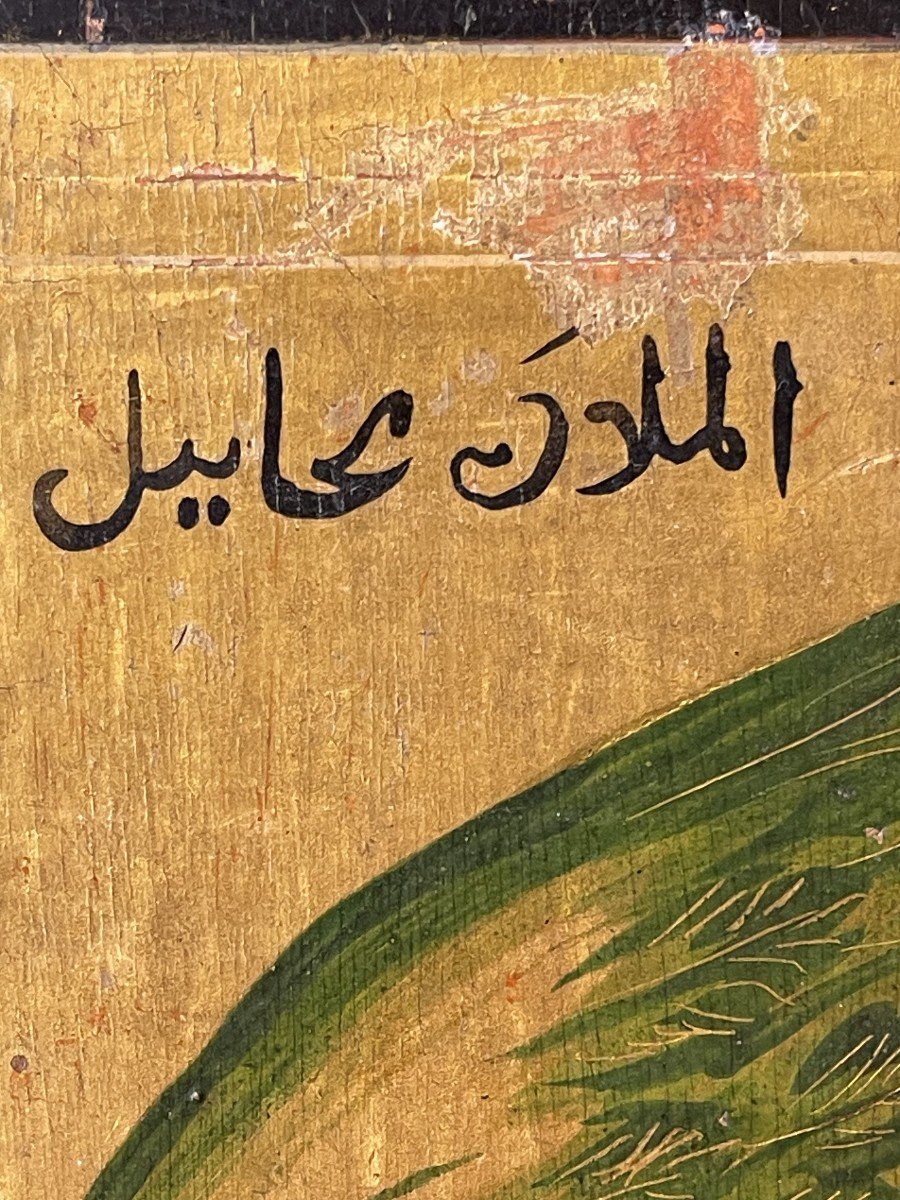 الملاك محاييل